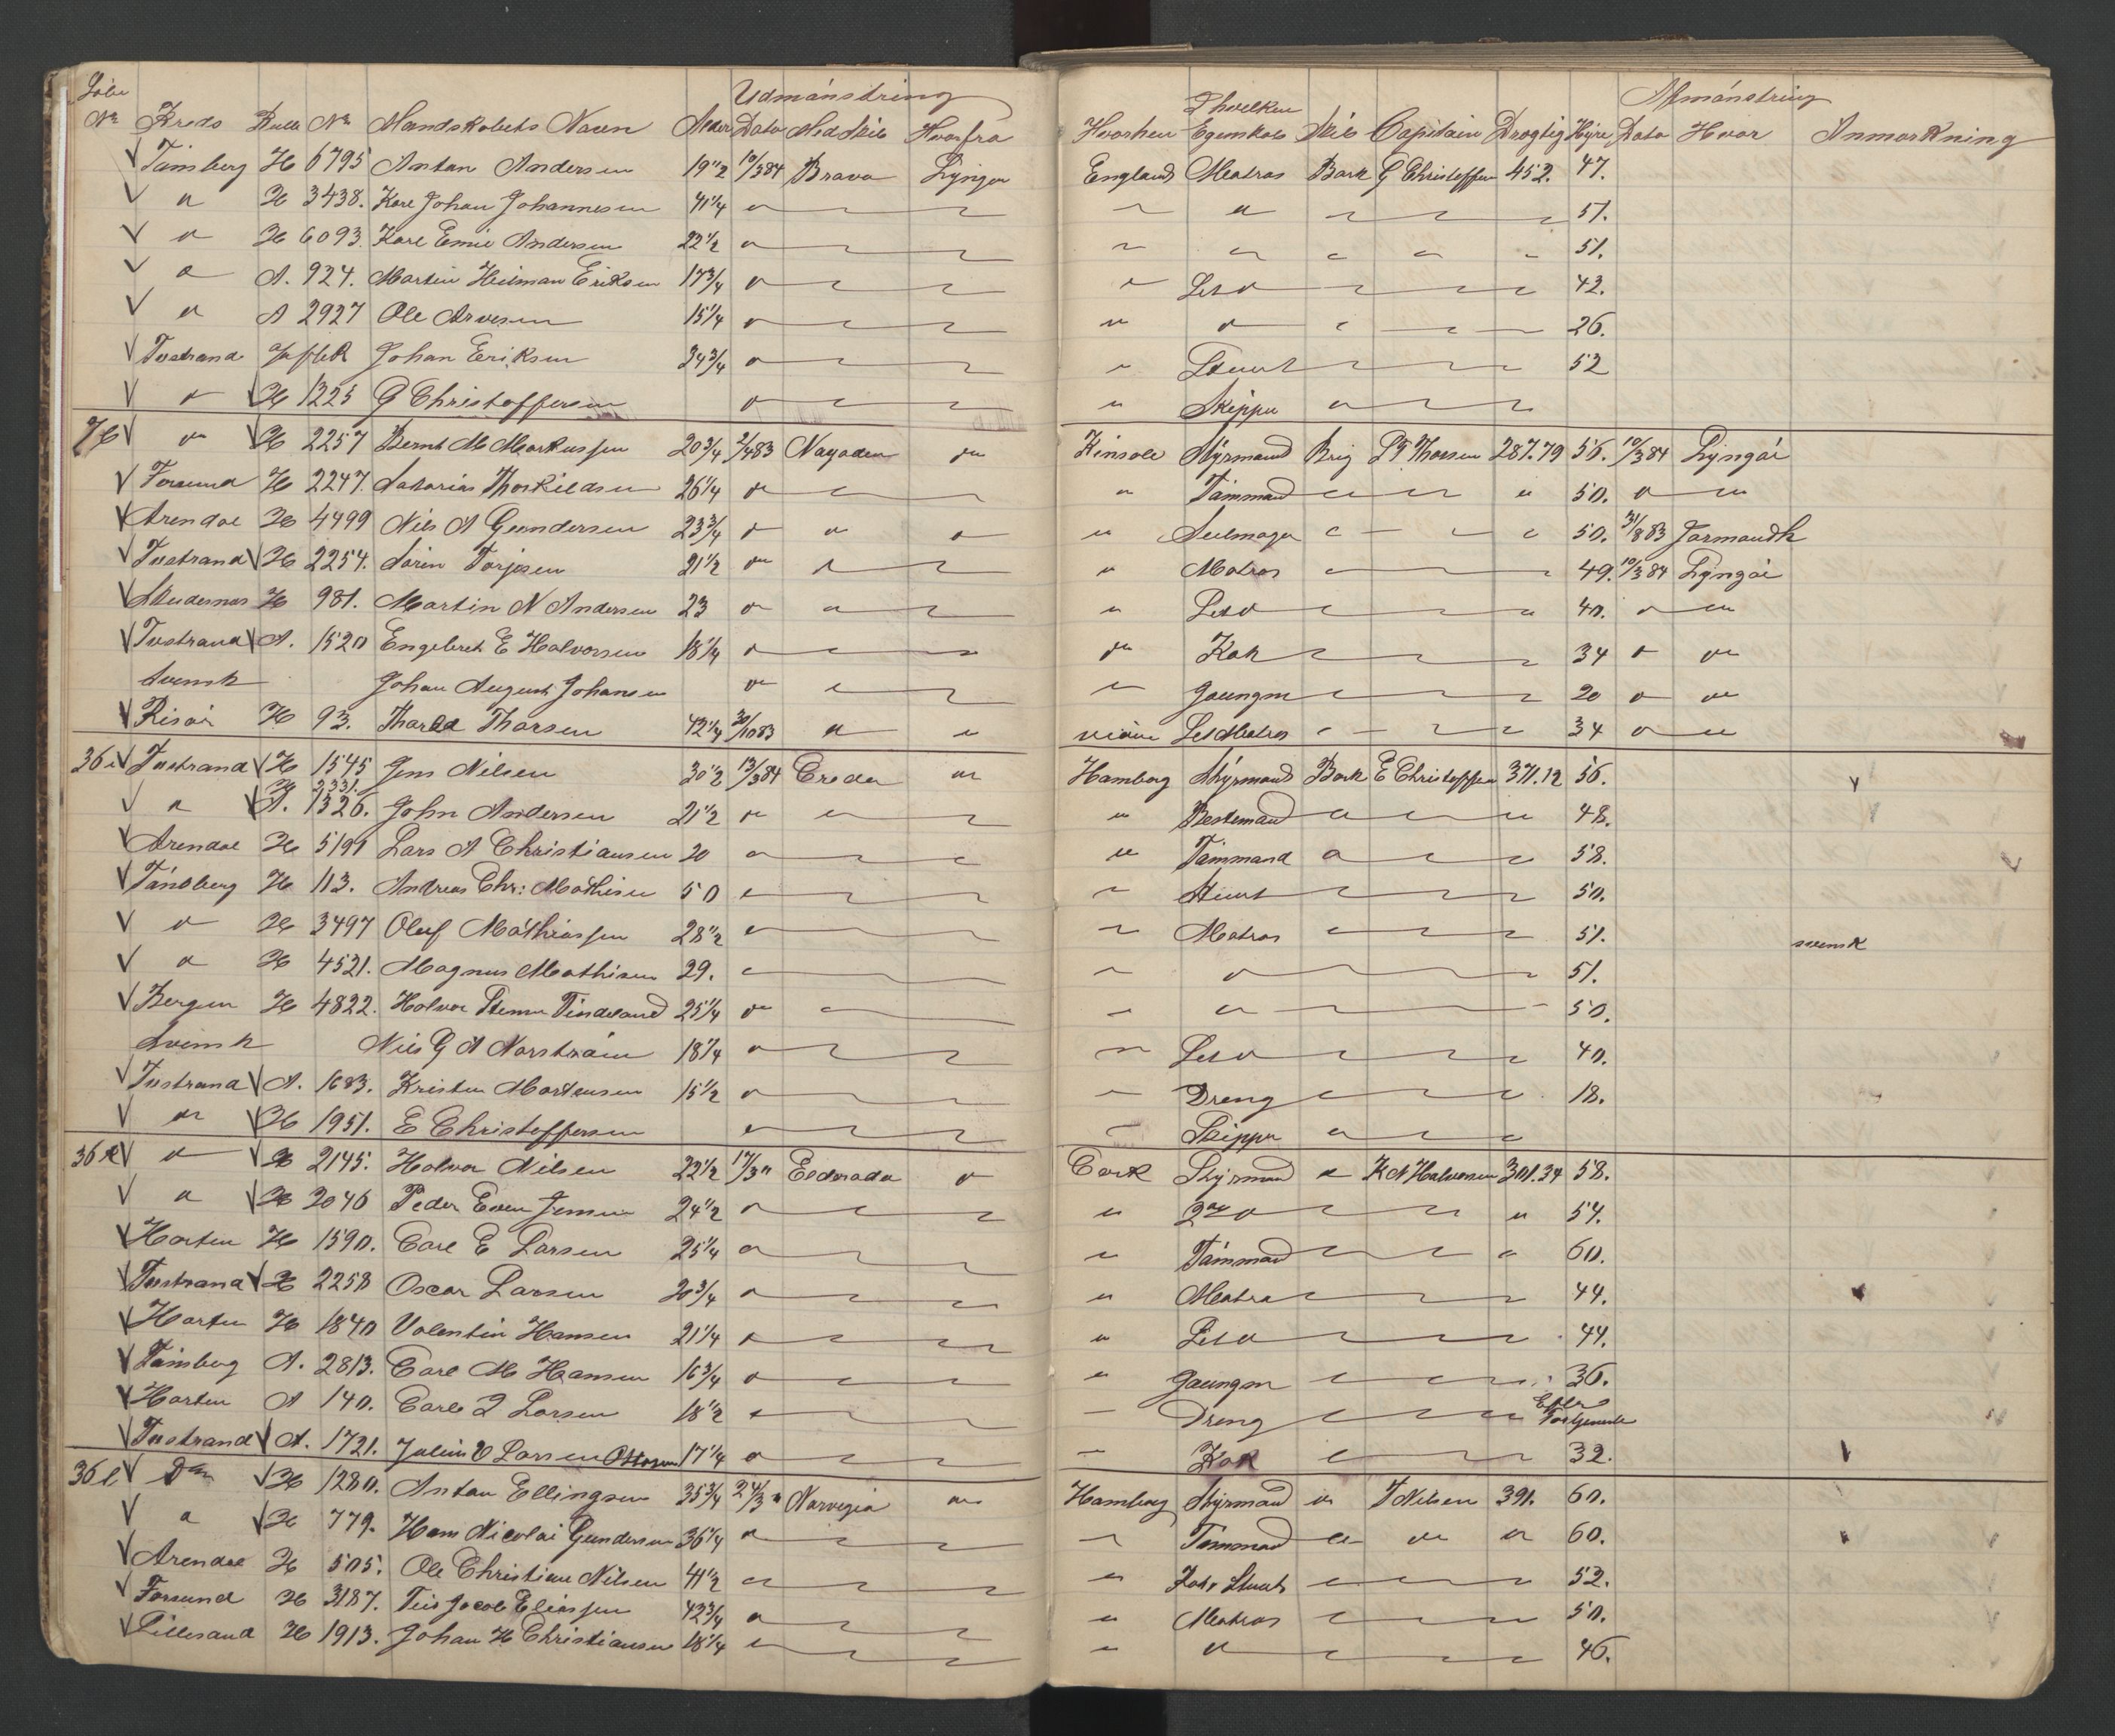 Udmönstring Afmönstring
Löbe Nr Kreds Rulle Nr Mandskabets Navn Alder Dato Med Skib Hvorfra Hvorhen I hvilken Egenskab Skib Capitain Drægtig Hyre Dato Hvor Anmærkning
Tönsberg H 6795 Anton Andersen 19 1/2 10/3 84 Bravo Lyngør England Matros Bark G Christoffersen 452. 47.
" H 3438. Karl Johan Johannesen 41 1/4 " " " 51.
" H 6093. Karl Emil Andersen 22 1/2 " " " 51.
" A. 924. Martin Heiman Eriksen 17 3/4 " " Let " 42.
" A 2927 Ole Arvesen 15 1/4 " " " 26.
Tvestrand Johan Eriksen 34 3/4 " " Stuert 52
" H 1225 G Christoffersen " " Skipper
76 " H 2257 Bernt M Markussen 20 3/4 2/4 83 Nayaden " Kinsale Styrmand Brig Thorsen 287.79 56. 10/3 84 Lyngör
Farsund H 2247. Sakarias Thorkildsen 26 1/4 " " Tömmand " 50. " "
Arendal H 4499 Nils A Gundersen 23 3/4 " " " " Seilmager 50. 31/8 83 Jarmouth
Tvestrand H 2254. Sörin Torjesen 21 1/2 " " Matros 49. 10/3 84 Lyngör
Skudesnes H 981. Martin N Andersen 23 " " Let " 40. " "
Tvestrand A. 1520 Engebret E Halvorsen 18 1/4 " " Kok 34 " "
Svensk Johan August Johansen " " Joungm 20 " "
Risör H 93. Tharald Thorsen 42 1/4 30/10 83 " " Let Matros 34 " "
36 i Tvestrand H 1545 Jens Nilsen 30 1/2 13/3 84 Creda " Hamborg Styrmand Bark E Christoffersen 371.12 56.
H 2331.
" A. 1326. John Andersen 21 1/2 " " Bestemand 48.
Arendal H 5191 Lars A Christiansen 20 " " Tömmand 58.
Tönsberg H 113. Andreas Chr: Mathisen 50 " " Stuert 50.
" H 3497 Oluf Mathiassen 28 1/2 " " Matros 51. svensk
" H 4521. Magnus Mathisen 29. " " " 51.
Bergen H 4822. Halvor Tindeland 25 1/4 " " " 50.
Svensk Nils G A Norström 18 1/4 " " Let " 40.
Tvestrand A. 1683. Kristen Mortensen 15 1/2 " " Dreng 18.
" H 1951. E Christoffersen " " Skipper
36 k " H 2145. Halvor Nilsen 22 1/2 17/3 " Eldorado " Cork Styrmand " K A Halvorsen 301.34 58.
" H 2046 Peder Even Jensen 24 1/2 " " 2den " 54.
Horten H 1590. Carl E Larsen 25 1/4 " " Tömmand " 60.
Tvestrand H 2258 Oscar Larsen 20 3/4 " " Matros 44.
Horten H 1840 Valentin Hansen 21 1/4 " " Let " 44.
Tönsberg A. 2813. Carl M Hansen 16 3/4 " " Joungm 36.
Horten A 140. Carl J Larsen 18 1/2 " " Dreng Efter Fortjeneste
Tvestrand A. 1721. Julius O Larsen Ottosen 17 1/4 " " Kok 32.
36 l Do H 1280. Anton Ellingsen 35 3/4 24/3 " Norvegia " Hamborg Styrmand " J Nilsen 391. 60.
" H 779. Hans Nicolai Gundersen 36 1/4 " " Tömmand " " " 60.
Arendal H 505. Ole Christian Nilsen 41 1/2 " " Kok & Stuert 52.
Farsund H 3187. Teis Jacob Eliassen 42 3/4 " " Matros 50.
Lillesand H 1913. Johan H Christiansen 18 1/4 " " " 46.